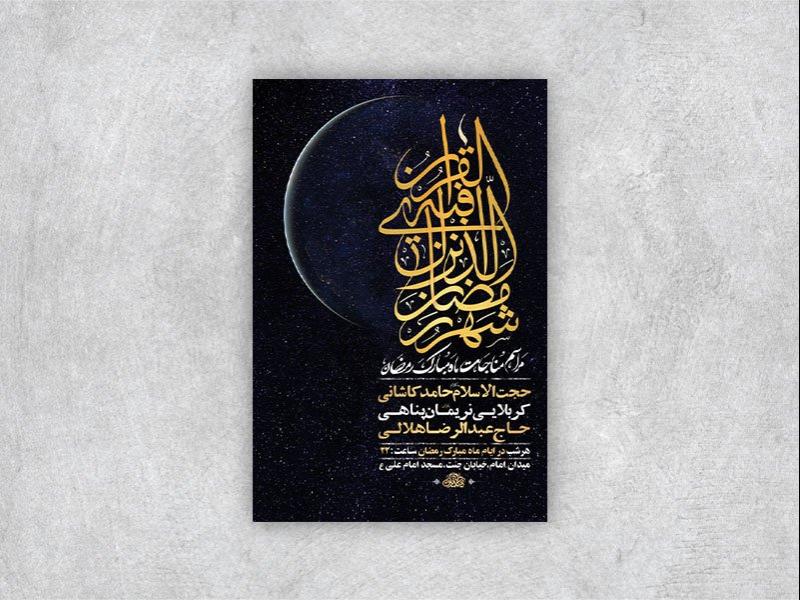 شهر رمضان الذي أنزل فيه القرآن
مراسم مناجات ماه مبارک رمضان
حجت الاسلام حامد کاشانی
کربلایی نریمان پناهی
حاج عبدالرضا هلالی
هرشب در ایام ماه مبارک رمضان ساعت: ۲۲
میدان امام، خیابان جنت، مسجد امام علی ع